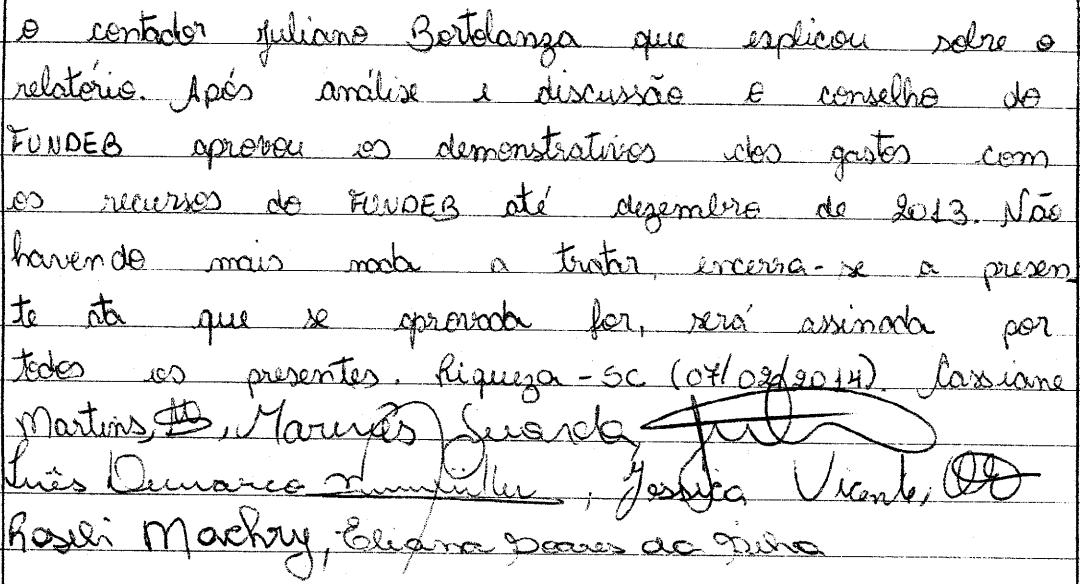 o contador Juliano Bortolanza que explicou sobre o
relatório. Após análise e discussão o conselho do
FUNDEB aprovou os demonstrativos dos gastos com
os recursos do FUNDEB até dezembro de 2013. Não
havendo mais nada a tratar, encerra-se a presen
te ata que se aprovada for, será assinada por
todos os presentes. Riqueza - SC (07/02/2014). Cassiane
Martins,
Inês Demarco , Jessica Vicente,
Roseli Machry, Eliana Soares da Silva